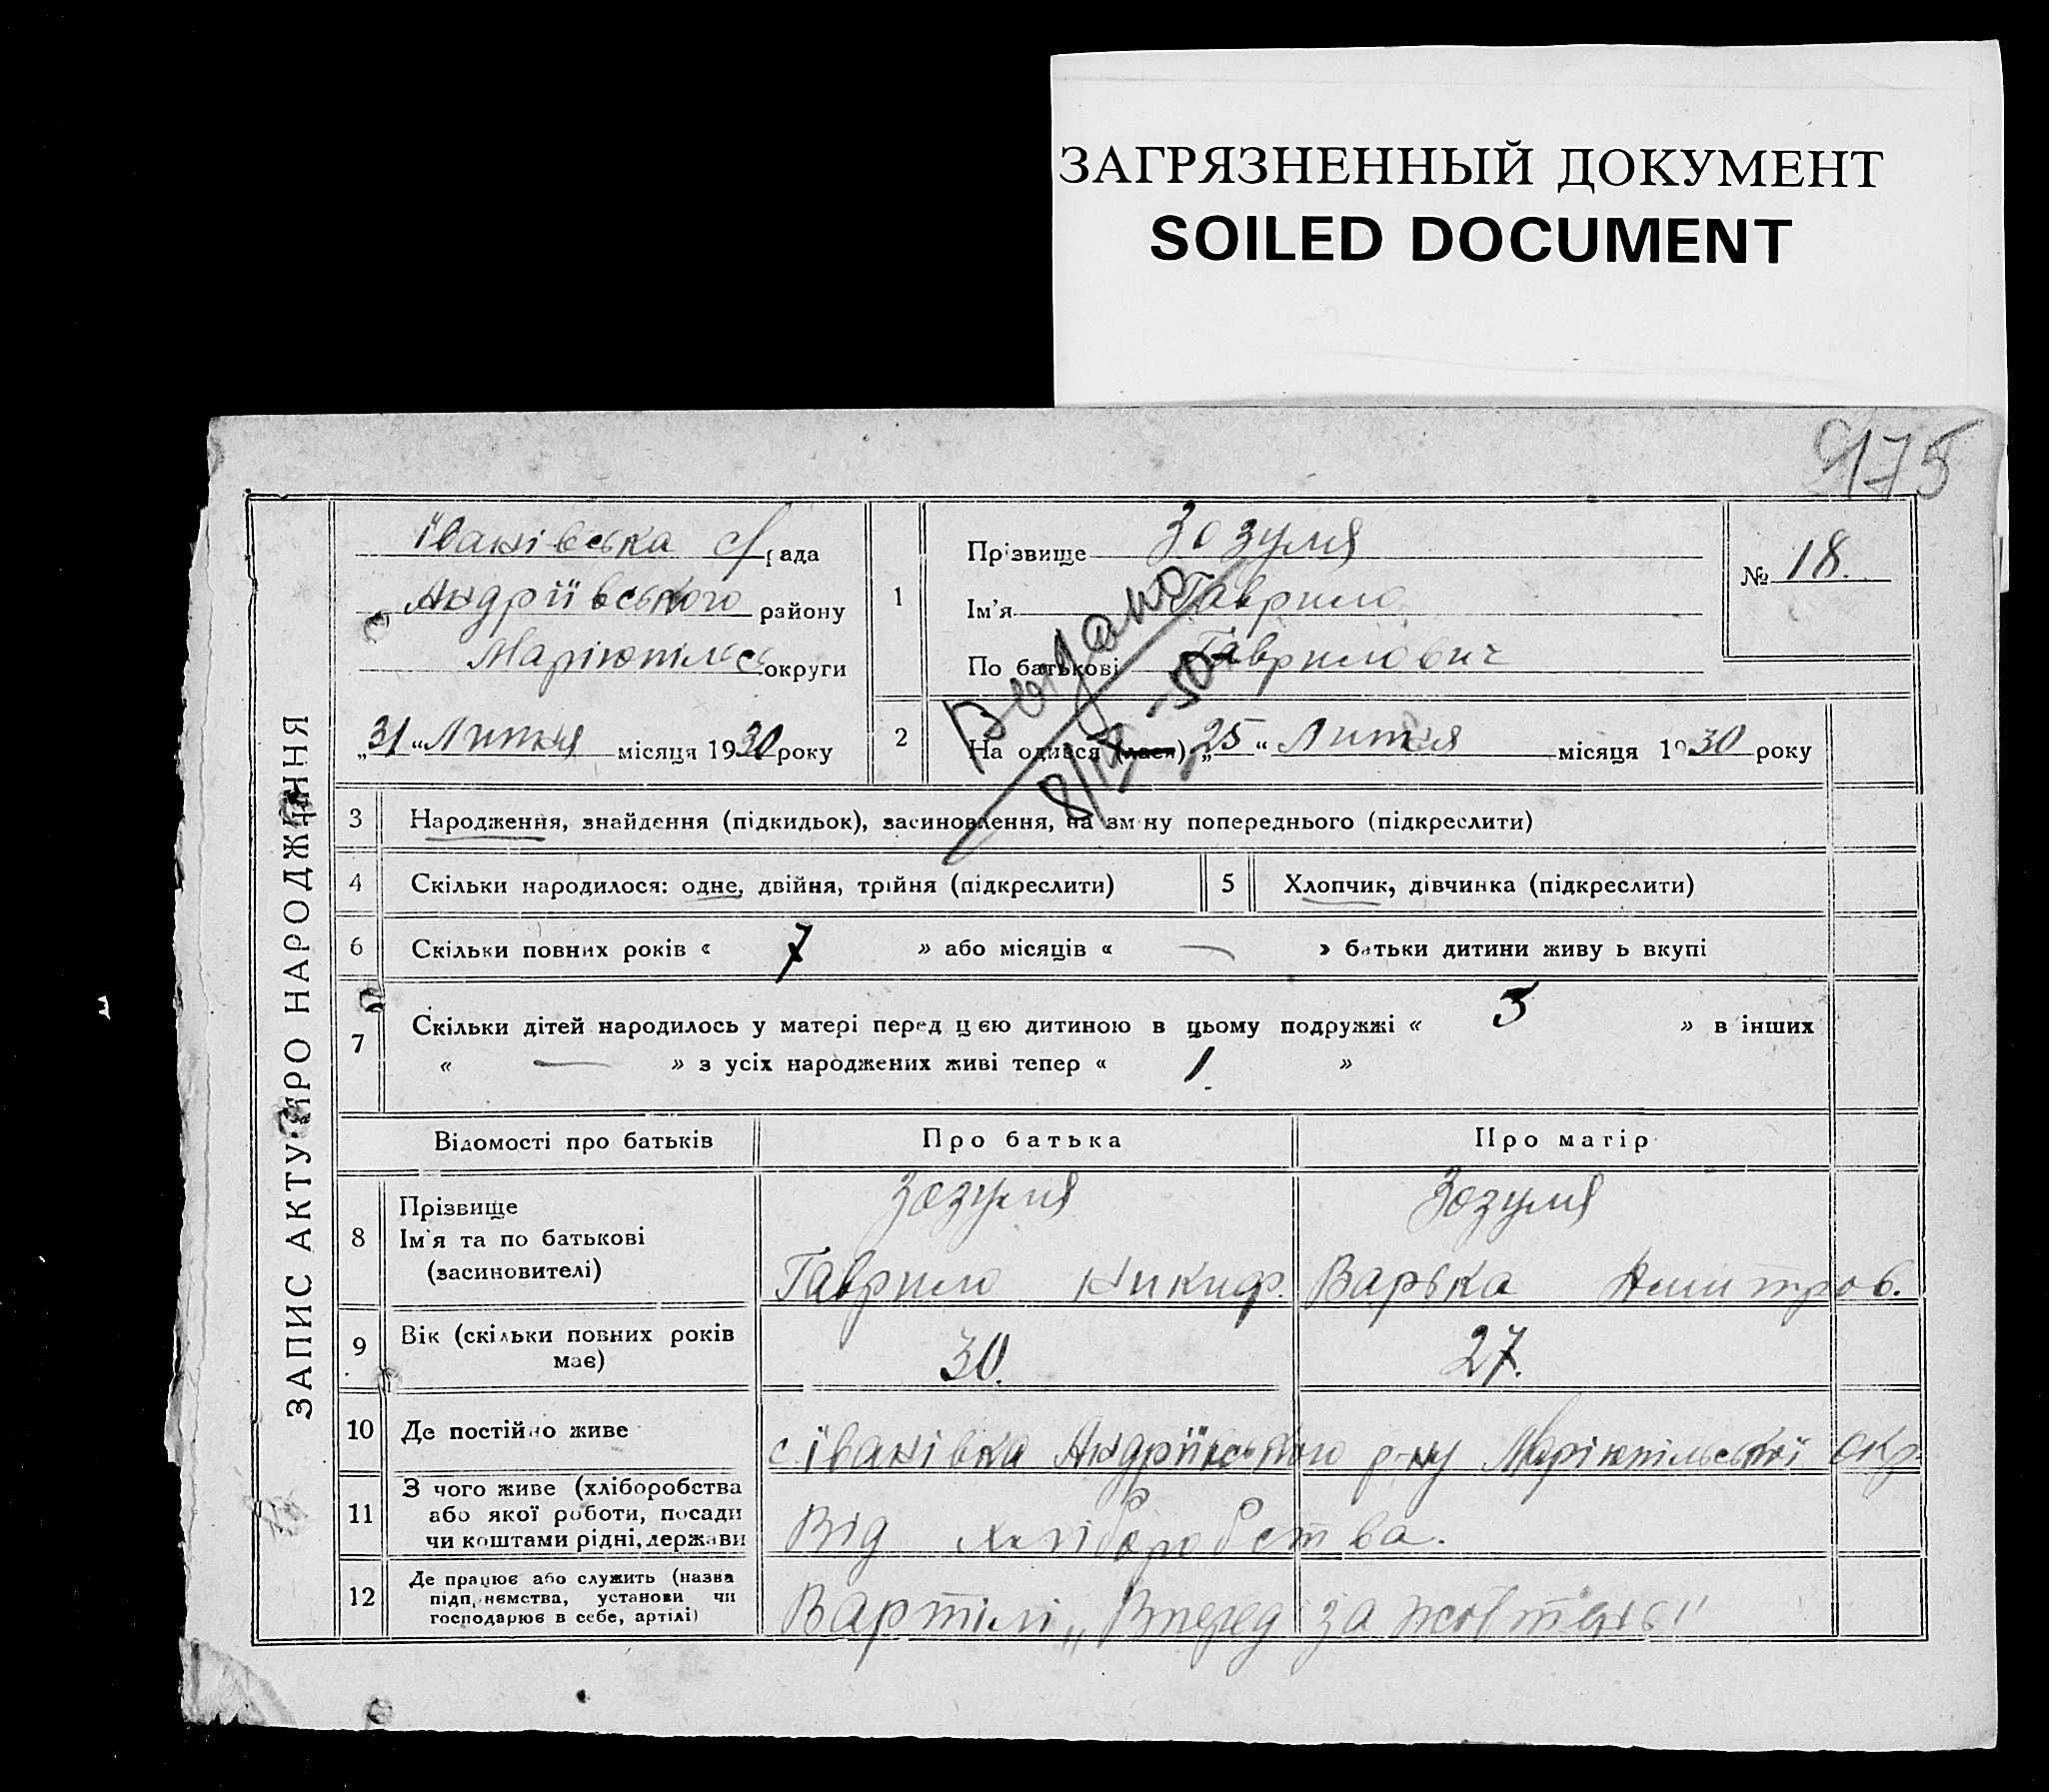 ЗАГРЯЗНЕННЫЙ ДОКУМЕНТ
SOILED DOCUMENT
175
ЗАПИС АКТУ ПРО НАРОДЖЕННЯ
Іванівська с/рада
Андріївського району
Маріюпільс округи
„31“ Липня місяця 1930 року
1
Прізвище Зозуля
Ім'я Гаврило
По батькові Гаврилович
№ 18.
2
На одився (лася) „25“ Липня місяця 1930 року
Видано
3 Народження, знайдення (підкидьок), засиновлення, на зм ну попереднього (підкреслити)
4 Скільки народилося: одне, двійня, трійня (підкреслити)
5 Хлопчик, дівчинка (підкреслити)
6 Скільки повних років « 7 » або місяців « — » батьки дитини живу ь вкупі
7 Скільки дітей народилось у матері перед цією дитиною в цьому подружжі « 3 » в інших
« — » з усіх народжених живі тепер « 1. »
Відомості про батьків Про батька Про матір
8 Прізвище Зозуля Зозуля
Ім'я та по батькові
(засиновителі) Гаврило Никиф. Варька Дмитров.
9 Вік (скільки повних років
має) 30. 27.
10 Де постійно живе с. Іванівка Андріївського р-ну Маріюпільської окр.
11 З чого живе (хліборобства
або якої роботи, посади
чи коштами рідні, держави Від хліборобства.
12 Де працює або служить (назва
підп иємства, установи чи
господарює в себе, артілі) Вартілі „Вперед за жовтень"